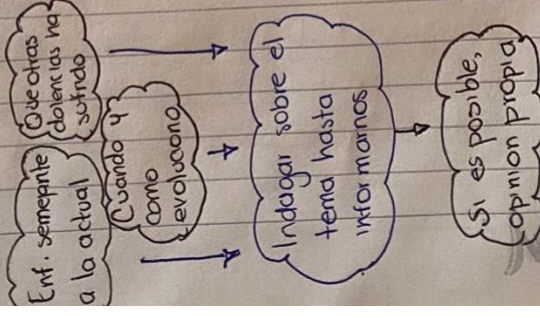 Enf. semejante
a la actual
Que otras
dolencias ha
sufrido
Cuando y
como
evoluciono
Indagar sobre el
tema hasta
informarnos
Si es posible,
opinion propia